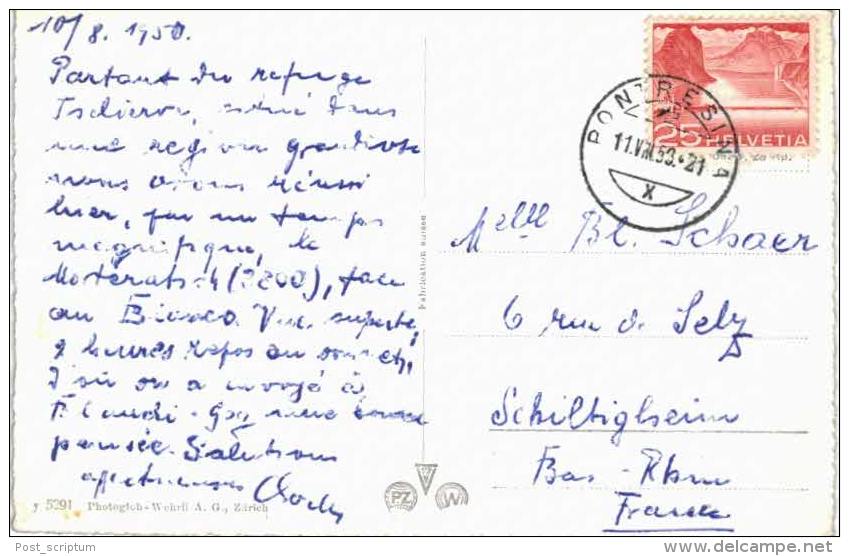 10/8. 1950.
Partant du refuge
Tschierva, situé dans
une région grandiose
nous avons réussi
hier, par un temps
magnifique, le
Mortératsch (3800), face
au Bianco. Vue superbe,
2 heures repos au sommet,
d'où on a envoyé à
Claudi - une bonne
pensée. Salutions
affectueuses
y 5291 Photoglob-Wehrli A. G., Zürich
Fabrication suisse
PZ W
25 HELVETIA
PONTRESINA
11.VIII.50.-21
X
Melle Bl. Schaer
6 rue de Selz
Schiltigheim
Bas - Rhin
France
Post_scriptum
© DELCAMPE.NET